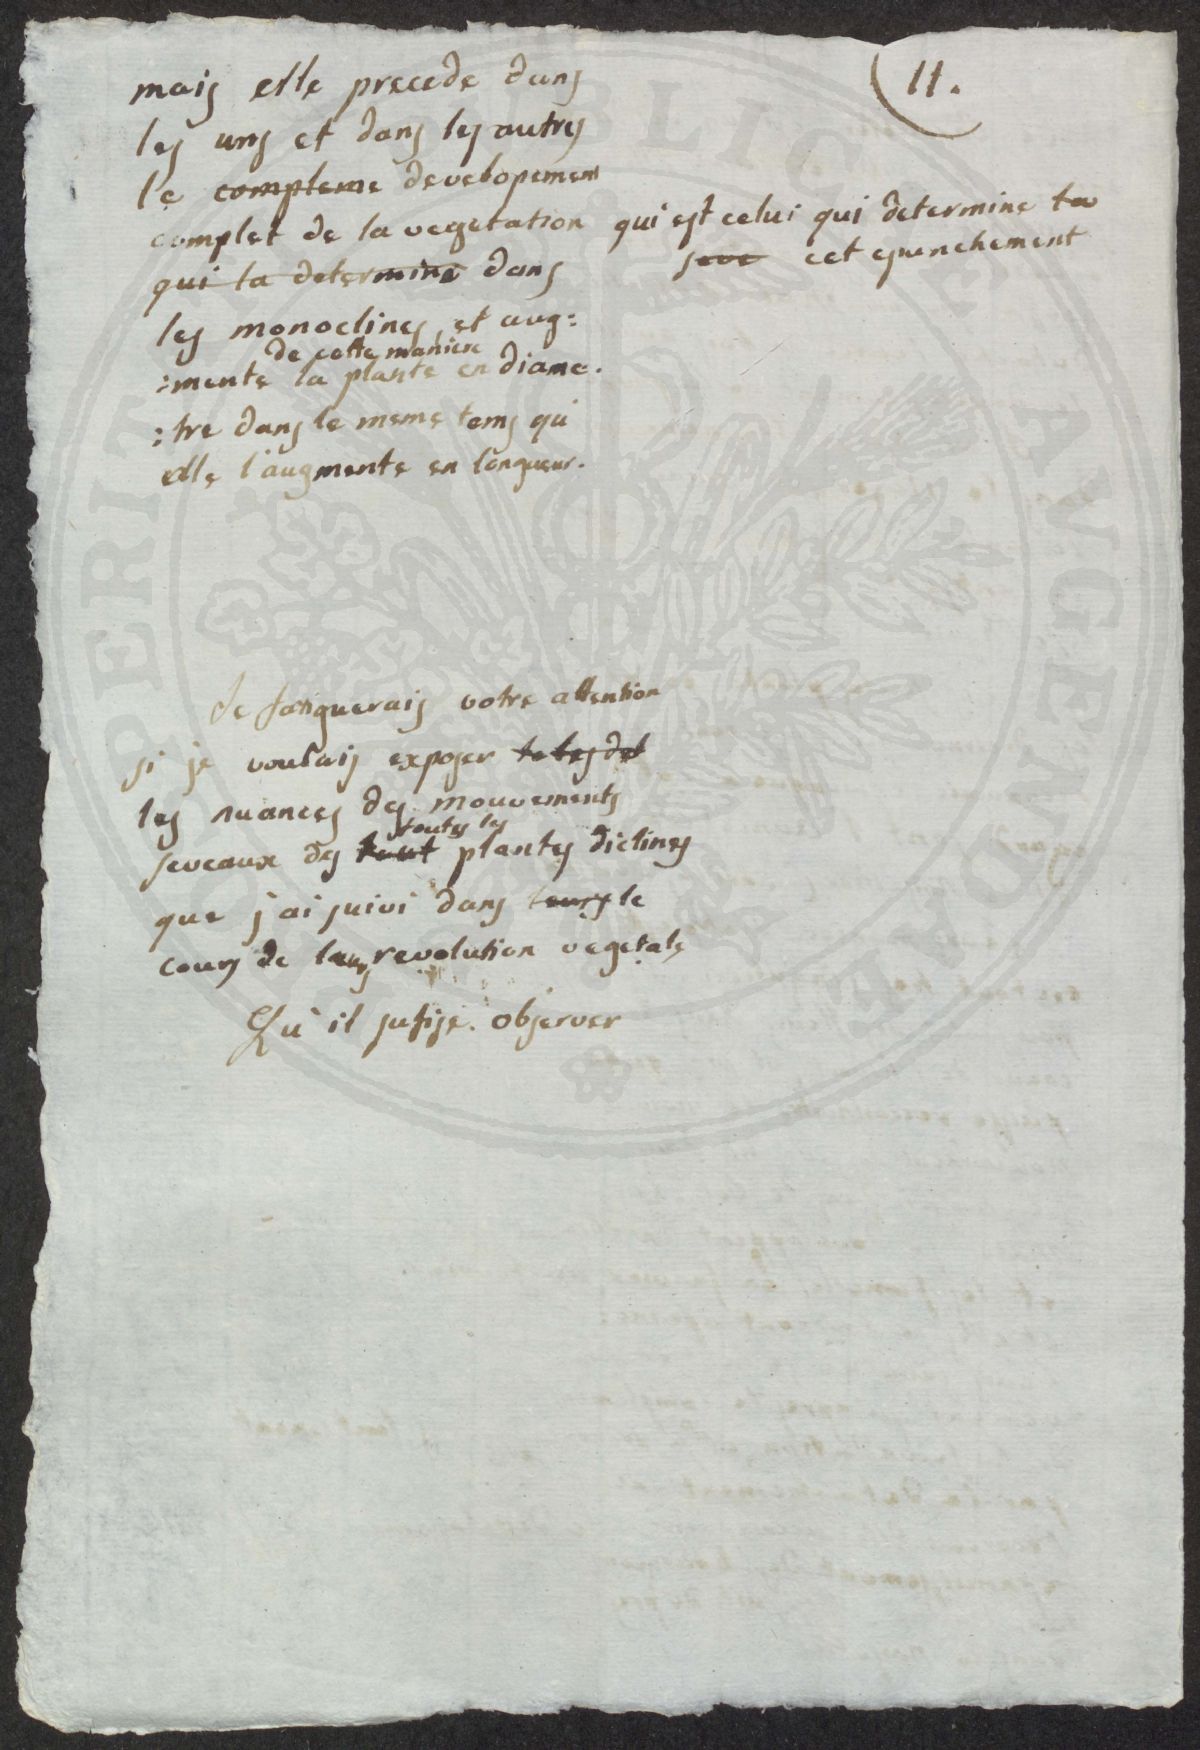 11.
mais elle precede dans
les uns et dans les autres
le compleme developement
complet de la vegetation qui est celui qui determine la
seve cet epanchement
qui la determine dans
les monoclines, et aug=
de cette maniere
=mente la plante en diame.
=tre dans le meme tems qu
elle l'augmente en longueur.
Je fatiguerais votre attention
si je voulais exposer
les nuances des mouvements
toutes les
seveaux des tout plantes diclines
que j'ai suivi dans leurs le
cours de leur revolution vegetale
Qu'il sufise observer